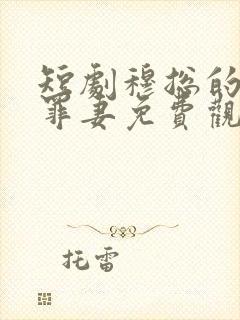 短劇穆总的
罪妻免費觀
托雷